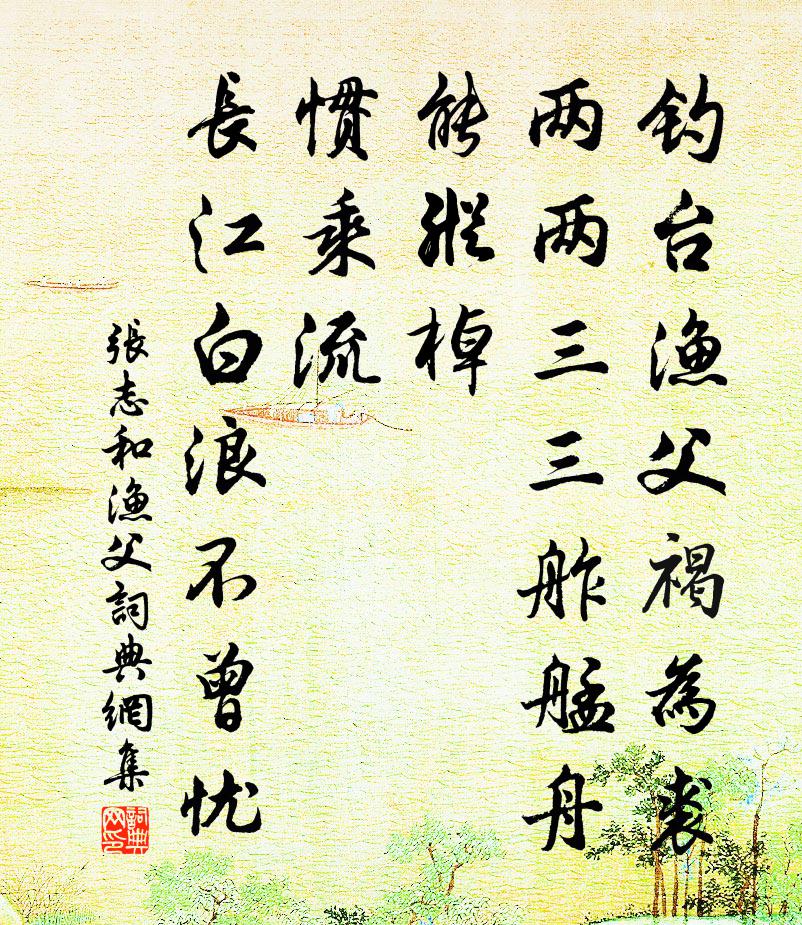 钓台渔父褐为裘
两两三三舴艋舟
能纵棹
惯乘流
長江白浪不曾忧
張志和渔父詞典網集
詞典网印